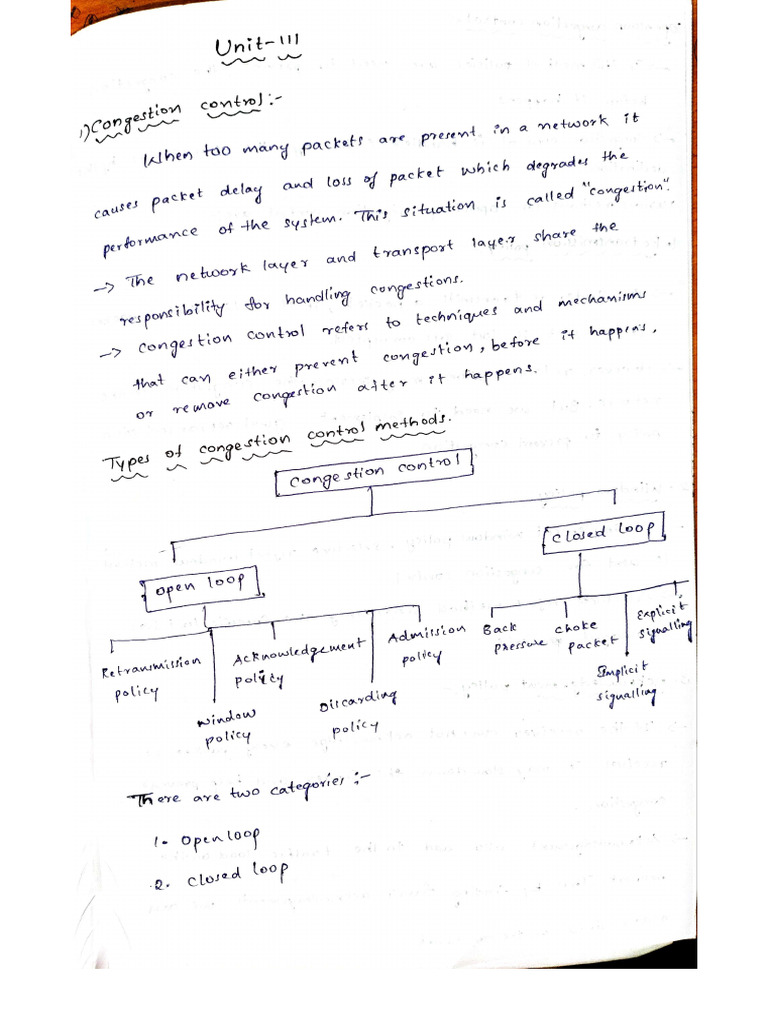 Unit-III
1) Congestion control:-
When too many packets are present in a network it
causes packet delay and loss of packet which degrades the
performance of the system. This situation is called "congestion".
-> The network layer and transport layer share the
responsibility for handling congestions.
-> Congestion control refers to techniques and mechanisms
that can either prevent congestion, before it happens,
or remove congestion after it happens.
Types of congestion control methods.
Congestion control
Closed loop
Open loop
Retransmission
policy
Window
policy
Acknowledgement
policy
Discarding
policy
Admission
policy
Back
pressure
choke
packet
Implicit
signalling
Explicit
signalling
There are two categories:-
1. Open loop
2. Closed loop